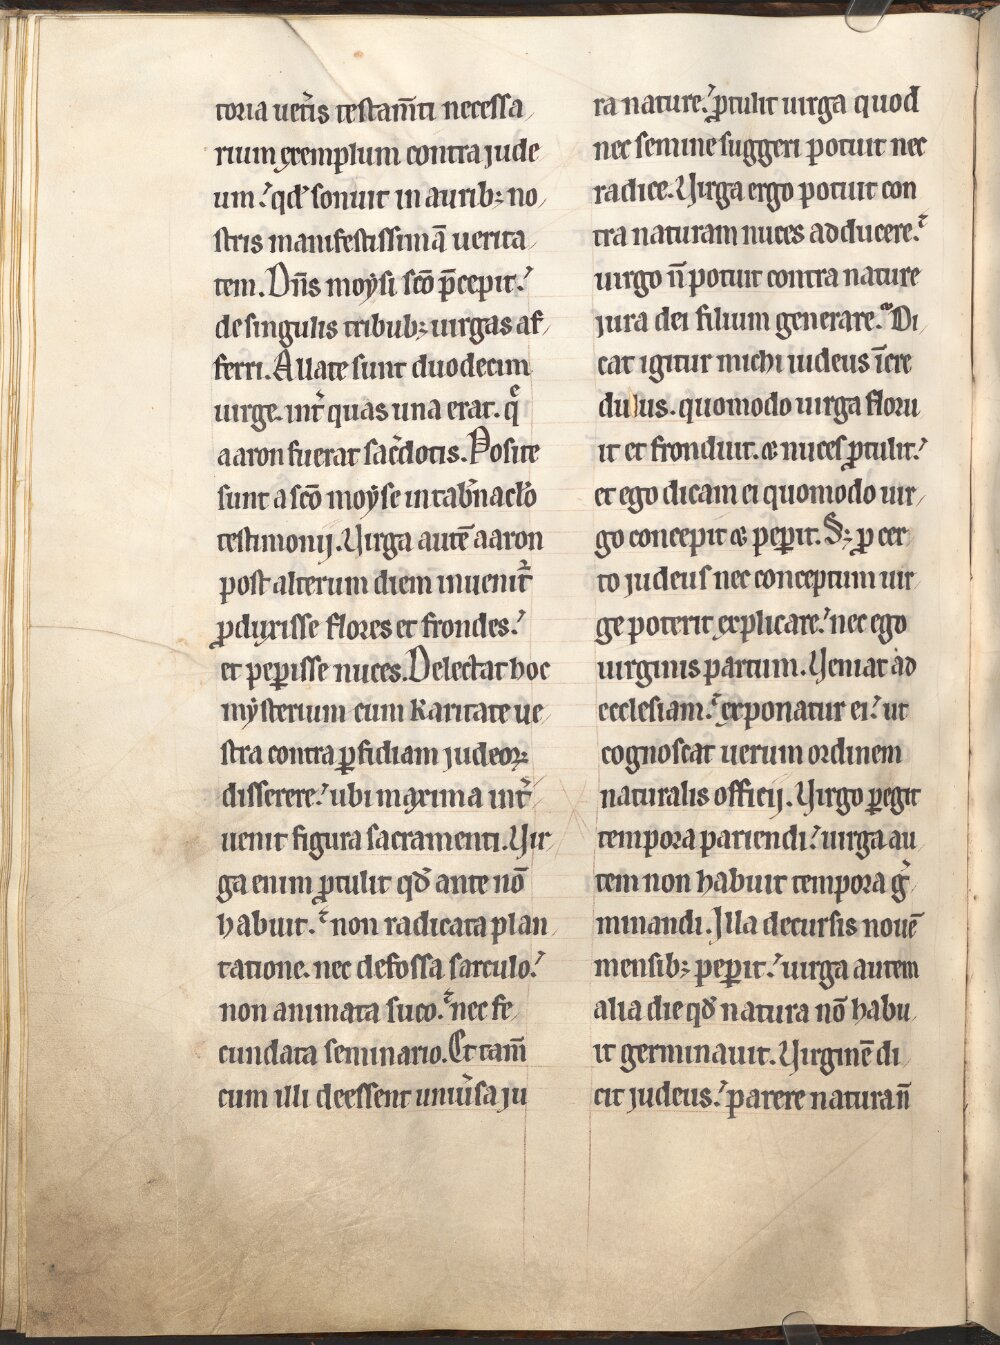 toria uet̾is testam̅ti necessa
rium exemplum contra jude
um. qd̛ sonuit in aurib; no
stris manifestissima̅ uerita
tem. Dn̅s moẏsi sc̅o p̅cepit.
de singulis tribub; uirgas af
ferri. Allate sunt duodecim
uirge. int̾ quas una erat. q̄
aaron fuerat sac̾dotis. Posite
sunt a sc̅o moẏse in tab̾naclo
testimonij. Uirga aute̅ aaron
post alterum diem inuenit̾
ꝓduxisse flores et frondes.
et peꝑisse nuces. Delectat hoc
mẏsterium cum karitate ue
stra contra ꝑfidiam judeoꝝ
disserere. ubi maxima int̾
uenit figura sacramenti. Uir
ga enim ꝓtulit qd̛ ante no̅
habuit. non radicata plan
tatione. nec defossa sarculo.
non animata suco. nec fe
cundata seminario. Et tam̅
cum illi deessent uniu̾sa ju
ra nature. ꝓtulit uirga quod
nec semine suggeri potuit nec
radice. Uirga ergo potuit con
tra naturam nuces adducere.
uirgo n̅ potuit contra nature
jura dei filium generare. Di
cat igitur michi iudeus i̅cre
dulus. quomodo uirga floru
it et fronduit. & nuces ꝓtulit.
et ego dicam ei quomodo uir
go concepit & peꝑit. S; ꝓ cer
to judeus nec conceptum uir
ge poterit explicare. nec ego
uirginis partum. Ueniat ad
ecclesiam. exponatur ei. ut
cognoscat uerum ordinem
naturalis officij. Uirgo ꝑegit
tempora pariendi. uirga au
tem non habuit tempora g̾
minandi. Illa decursis noue̅
mensib; peꝑit. uirga autem
alia die qd̛ natura no̅ habu
it germinauit. Uirgine̅ di
cit judeus. parere natura n̅